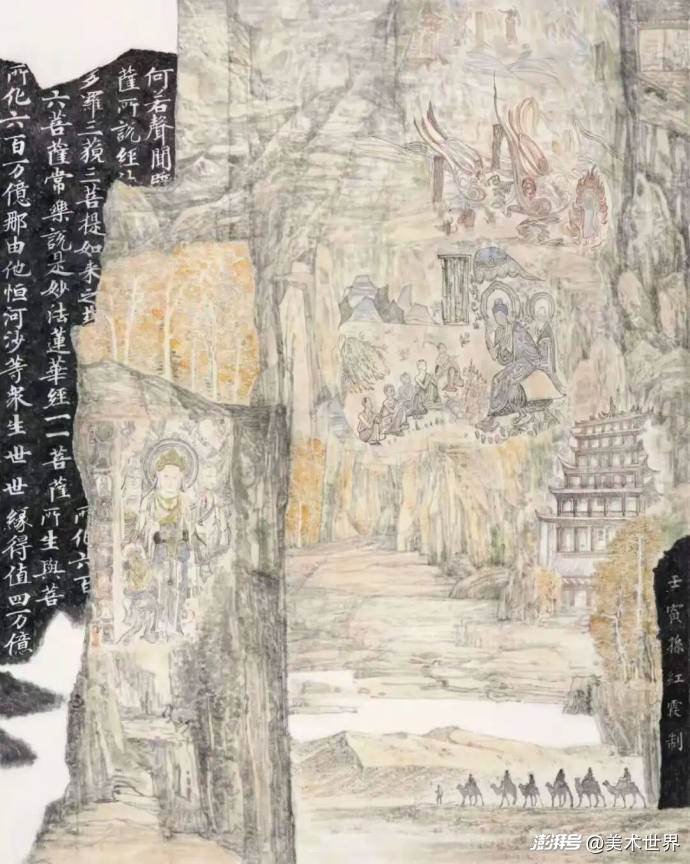 何若聲聞
薩所說經
多羅三藐三菩提如來之
所化六百
六菩薩常樂說是妙法蓮華經一一菩薩
所生與菩
所化六百万億那由他恒河沙等衆生世世
緣得值四万億
壬寅孫紅霞制
澎湃号@美术世界